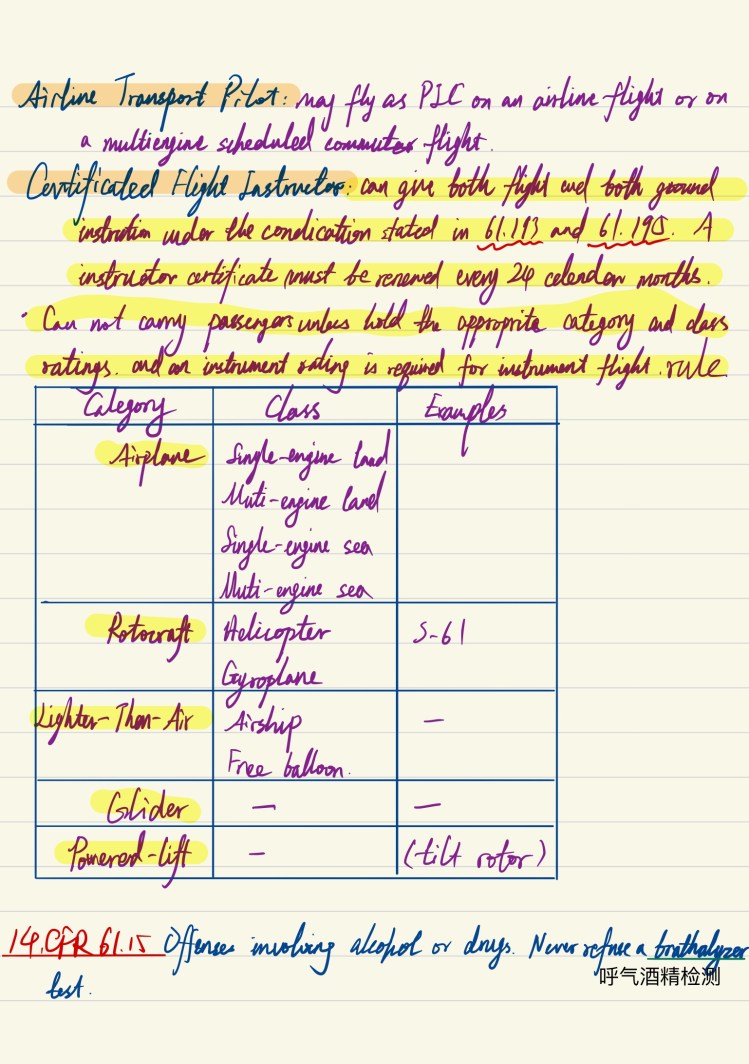 Airline Transport Pilot: may fly as PIC on an airline flight or on
a multiengine scheduled commuter flight.
Certificated Flight Instructor: can give both flight and both ground
instrution under the condication stated in 61.193 and 61.195. A
instructor certificate must be renewed every 24 calendar months.
Can not carry passengers unless hold the approprite category and class
ratings. and an instrument rating is required for instrument flight. rule
Category Class Examples
Airplane Single-engine land
Muti-engine land
Single-engine sea
Muti-engine sea
Rotocraft Helicopter S-61
Gyroplane
Lighter-Than-Air Airship —
Free balloon.
Glider — —
Powered-lift — (tilt rotor)
14.CFR 61.15 Offenses involving alcohol or drugs. Never refuse a brathalyzer
呼气酒精检测
test.